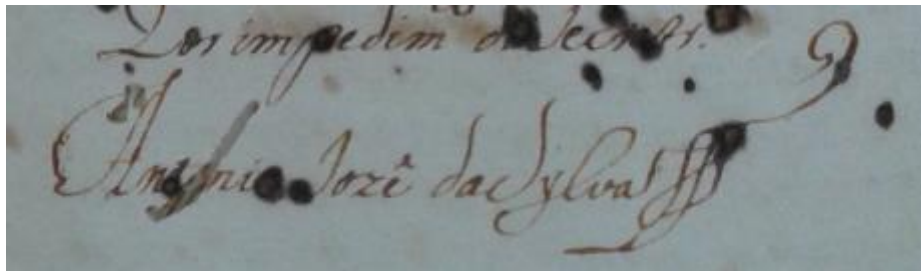 Por impedim.to do Secretr.
Antonio Jozê da Sylva